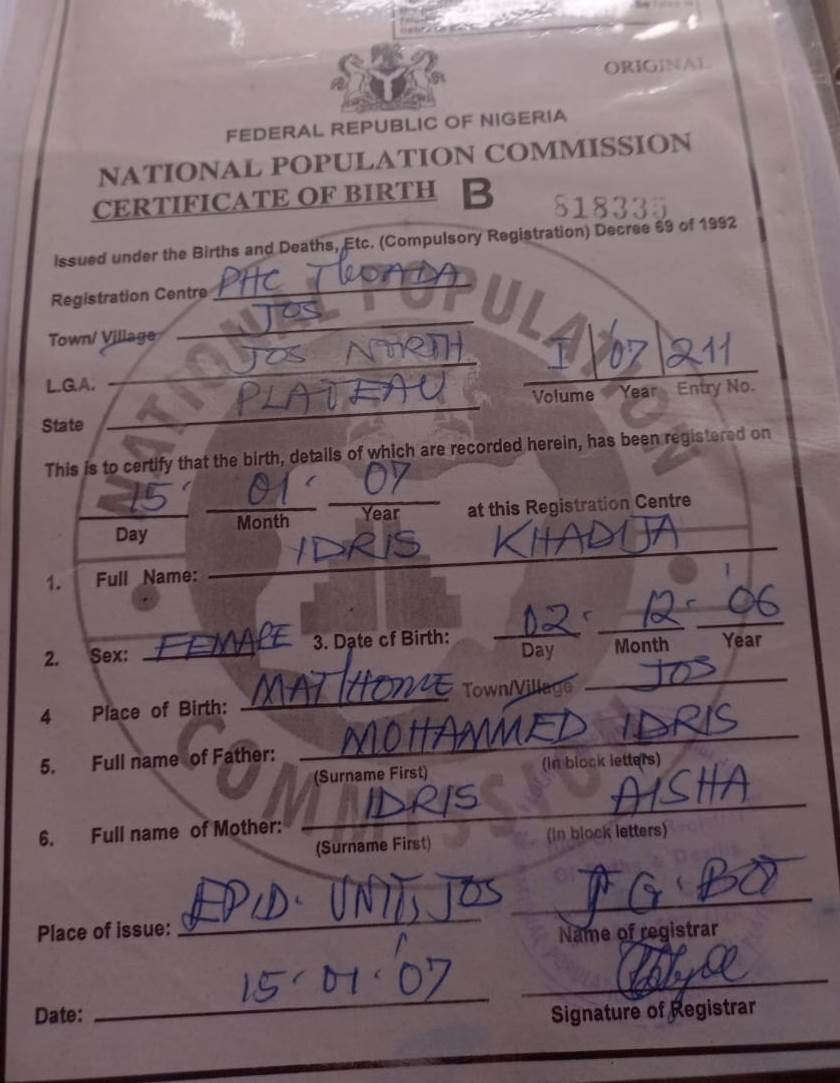 ORIGINAL
FEDERAL REPUBLIC OF NIGERIA
NATIONAL POPULATION COMMISSION
CERTIFICATE OF BIRTH B 818335
Issued under the Births and Deaths, Etc. (Compulsory Registration) Decree 69 of 1992
Registration Centre PHC
Town/ Village JOS
L.G.A. JOS NORTH
State PLATEAU
I / 07 / 211
Volume Year Entry No.
This is to certify that the birth, details of which are recorded herein, has been registered on
15 01 07 at this Registration Centre
Day Month Year
1. Full Name: IDRIS KHADIJA
2. Sex: FEMALE 3. Date of Birth: 02 12 06
Day Month Year
4 Place of Birth: MAT/HOME Town/Village JOS
5. Full name of Father: MOHAMMED IDRIS
(Surname First) (In block letters)
6. Full name of Mother: IDRIS AISHA
(Surname First) (In block letters)
Place of issue: EPID. UNIT, JOS G. BOT
Name of registrar
Date: 15.01.'07
Signature of Registrar
NATIONAL POPULATION COMMISSION